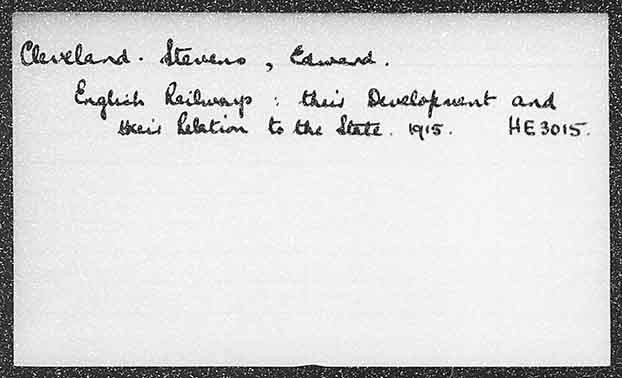 Cleveland-Stevens, Edward.
English Railways: their Development and
their Relation to the State. 1915. HE3015.